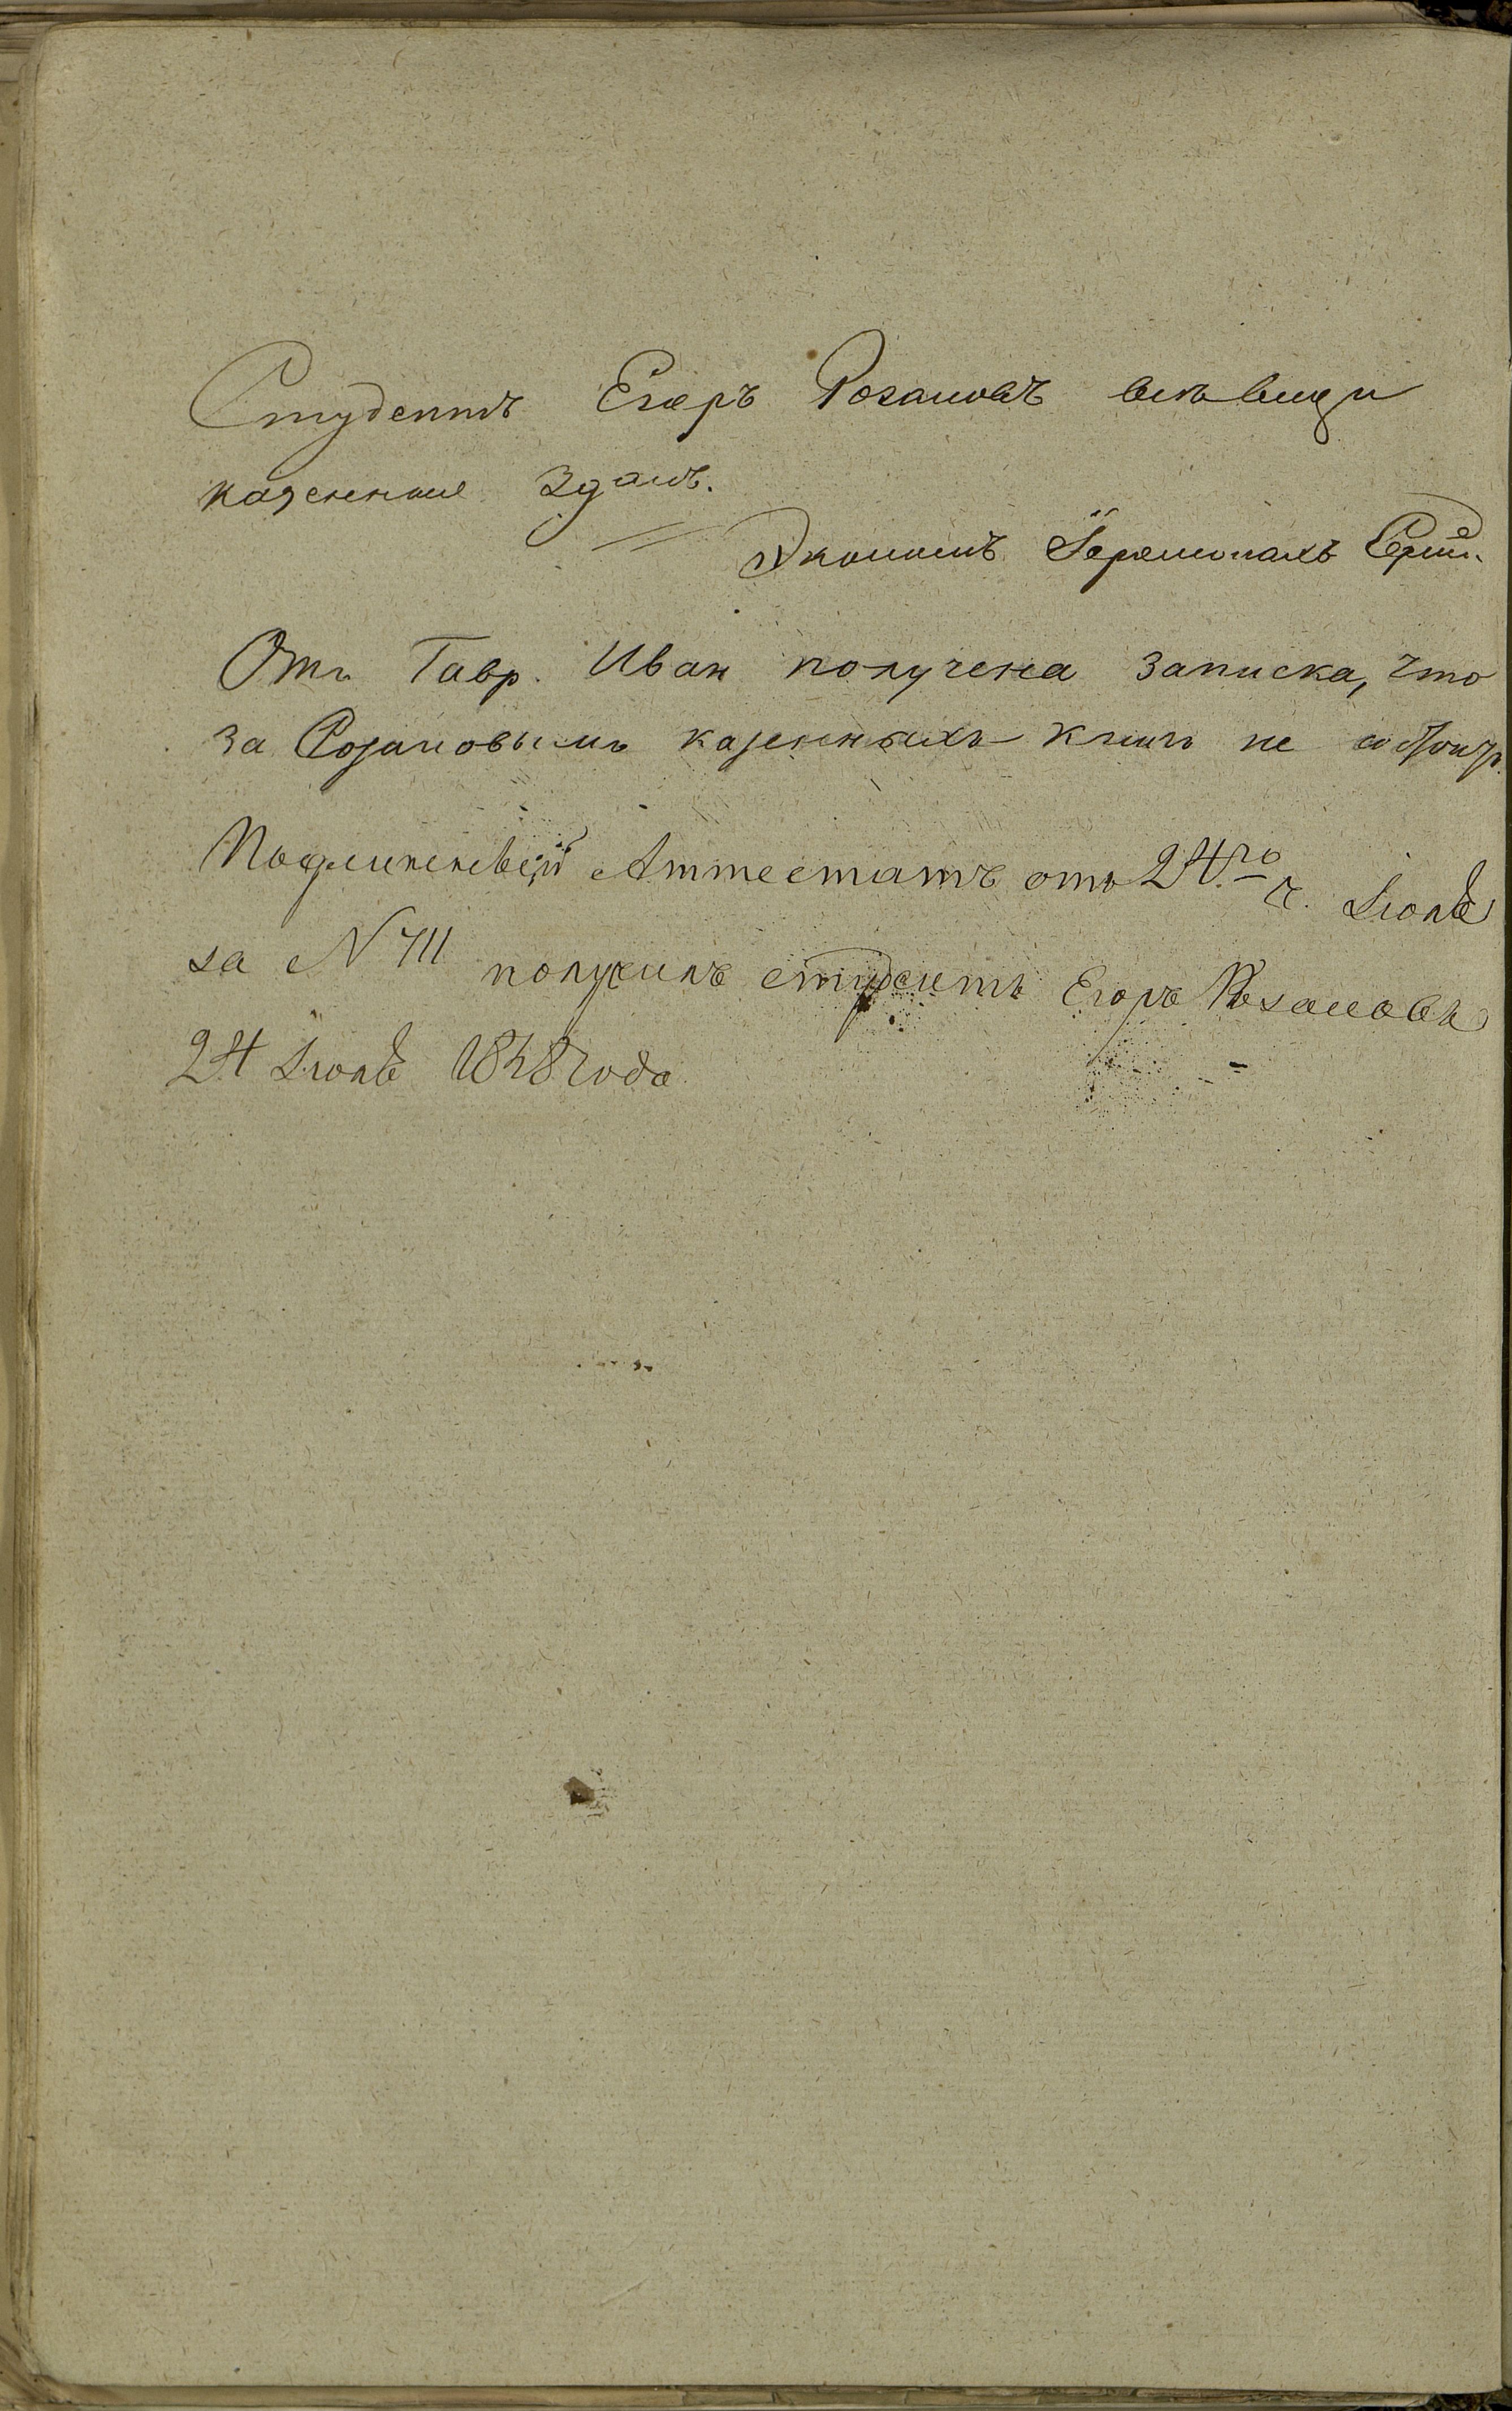 Студентъ Егоръ Розановъ всѣ вещи
казенныя здалъ.
Экономъ Іеромонахъ
Отъ Гавр. Иван получена записка, что
за Розановымъ казенныхъ книгъ не
Подлинный Аттестатъ отъ 24.го ч. Іюля
за N 711 получилъ студентъ Егоръ Розановъ
24 Іюля 1848 года